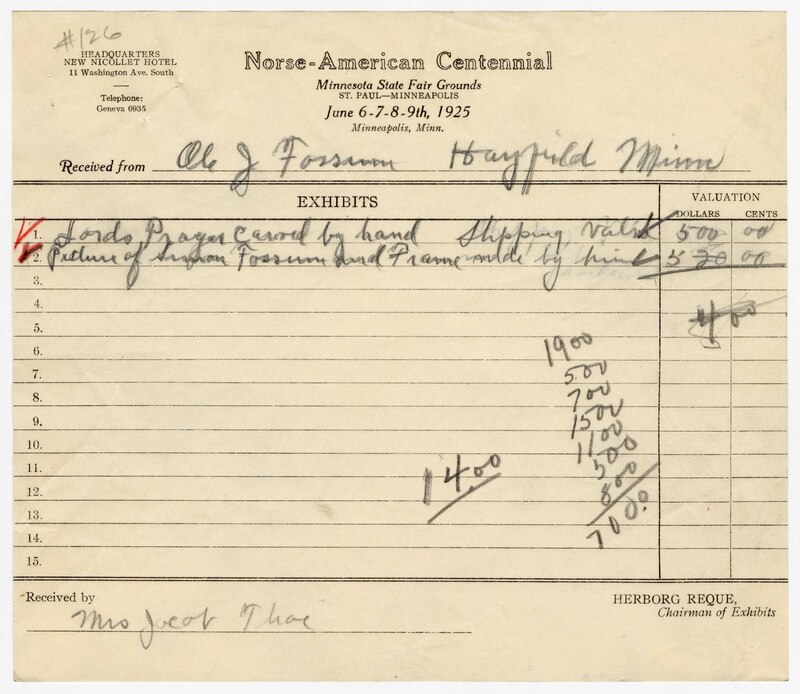 #126
HEADQUARTERS
NEW NICOLLET HOTEL
11 Washington Ave. South
Telephone:
Geneva 6935
Norse-American Centennial
Minnesota State Fair Grounds
ST. PAUL—MINNEAPOLIS
June 6-7-8-9th, 1925
Minneapolis, Minn.
Received from Ole J Fossum Hayfield Minn
EXHIBITS
VALUATION
DOLLARS CENTS
1. Lords Prayer Carved by hand Shipping Value 500 00
2. Picture of Fossum and Frame made by him 5 00
3.
4.
5. 4 00
6. 1900
7. 500
8. 700
9. 1500
10. 1100
11. 14.00 500
12. 800
13. 70.00
14.
15.
Received by
Mrs Jacob Thoe
HERBORG REQUE,
Chairman of Exhibits